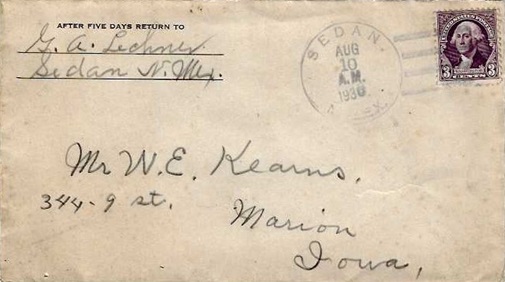 AFTER FIVE DAYS RETURN TO
G. A. Lechner
Sedan N. Mex.
SEDAN.
AUG
10
A.M.
1936
N. MEX.
UNITED STATES POSTAGE
3 3
Mr W. E. Kearns.
344-9 st.
Marion
Iowa,